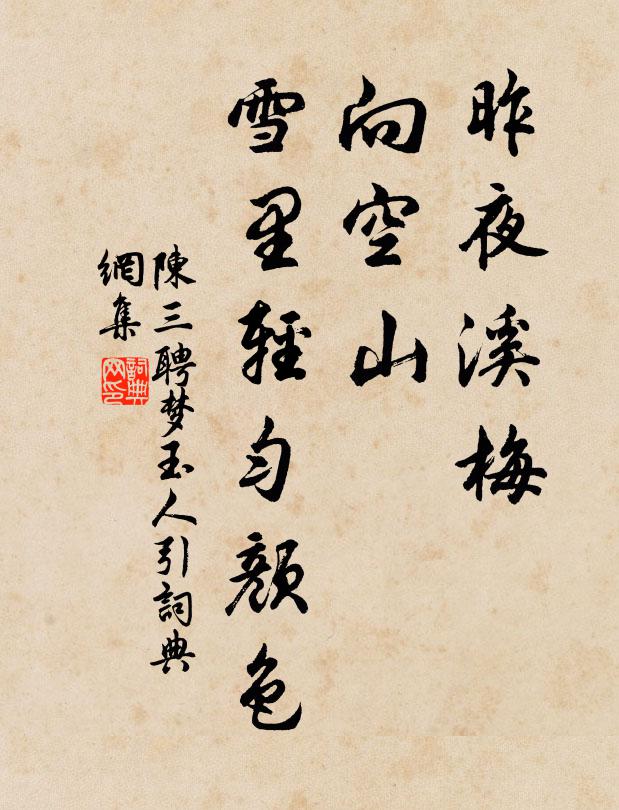 昨夜溪梅
向空山
雪里輕勻顏色
陳三聘梦玉人引詞典
網集
詞典网印